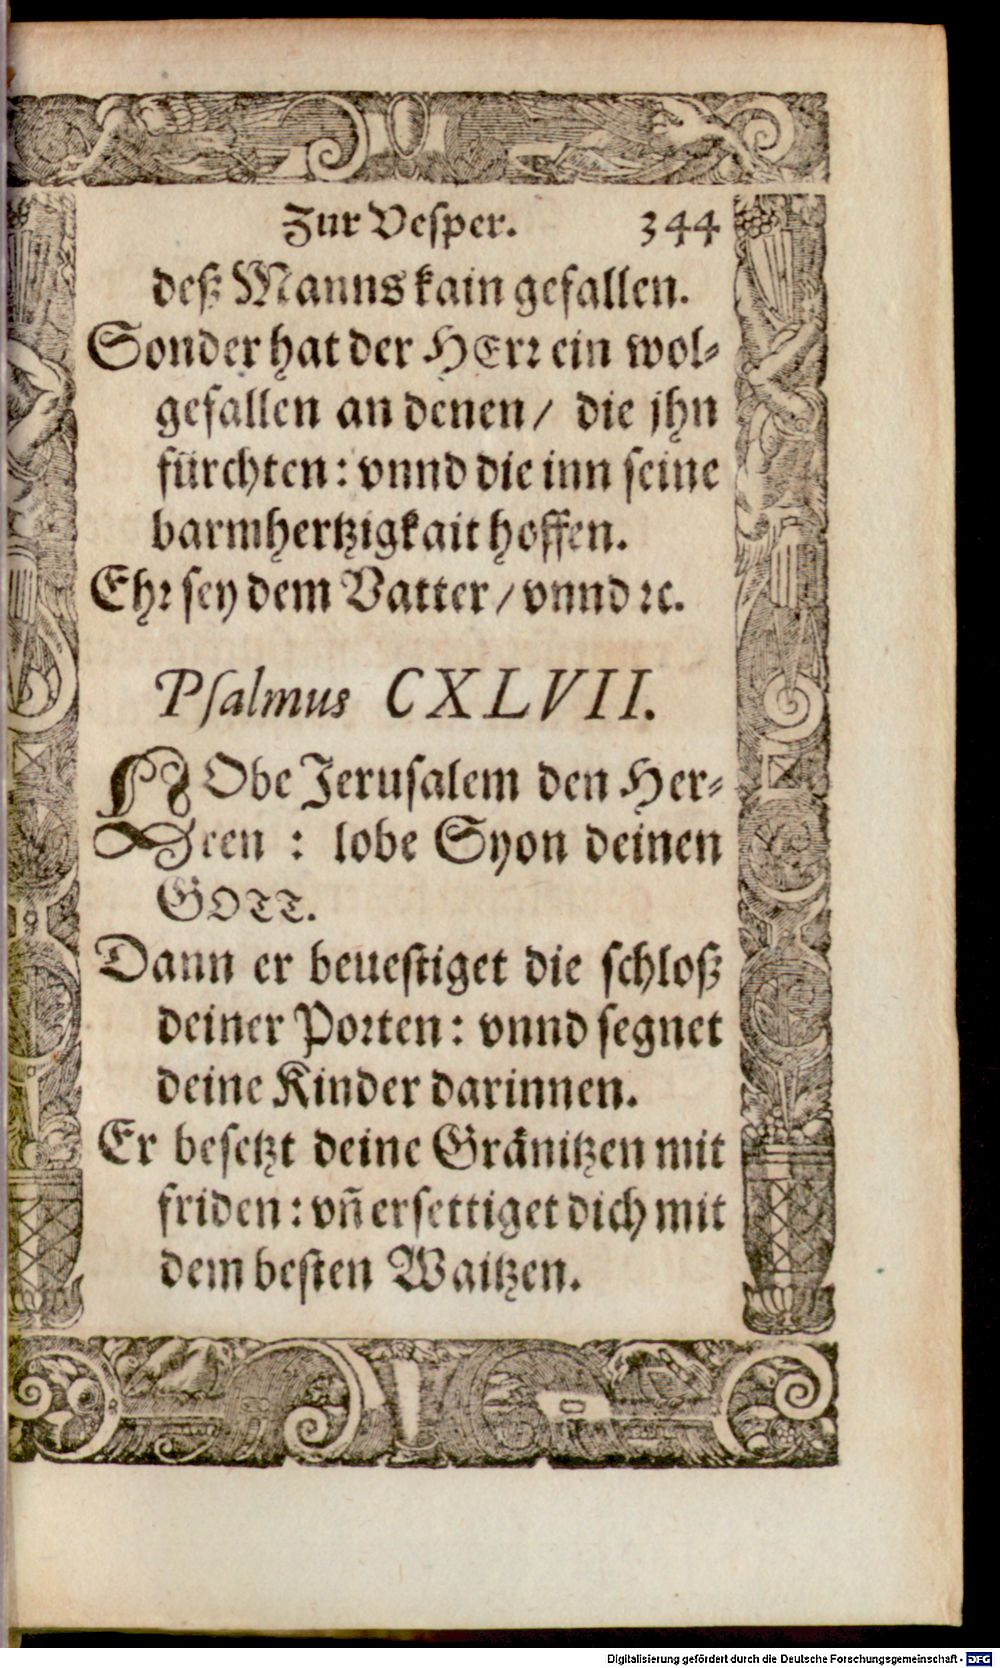 Zur Vesper. 344
deß Manns kain gefallen.
Sonder hat der HErr ein wol-
gefallen an denen / die jhn
fürchten: vnnd die inn seine
barmhertzigkait hoffen.
Ehr sey dem Vatter / vnnd ꝛc.
Psalmus CXLVII.
LObe Jerusalem den Her-
ren : lobe Syon deinen
GOTT.
Dann er beuestiget die schloß
deiner Porten: vnnd segnet
deine Kinder darinnen.
Er besetzt deine Gränitzen mit
friden: vñ ersettiget dich mit
dem besten Waitzen.
Digitalisierung gefördert durch die Deutsche Forschungsgemeinschaft - DFG